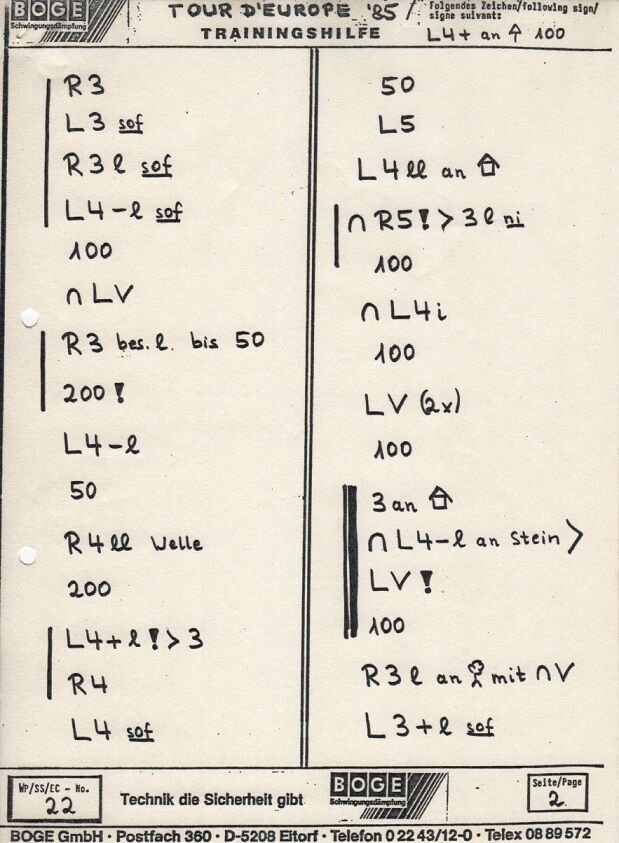 BOGE
Schwingungsdämpfung
TOUR D'EUROPE '85 /
TRAININGSHILFE
Folgendes Zeichen/following sign/
signe suivant:
L4+ an ↑ 100
R3
L3 sof
R3 l sof
L4-l sof
100
∩ LV
R3 bes. l. bis 50
200 !
L4-l
50
R4 ll Welle
200
L4+l ! > 3
R4
L4 sof
50
L5
L4 ll an
∩ R5 ! > 3 l ni
100
∩ L4 i
100
LV (2x)
100
3 an
∩ L4-l an Stein >
LV !
100
R3 l an mit ∩ V
L3+l sof
WP/SS/EC - No.
22
Technik die Sicherheit gibt
BOGE
Schwingungsdämpfung
Seite/Page
2
BOGE GmbH · Postfach 360 · D-5208 Eitorf · Telefon 0 22 43/12-0 · Telex 08 89 572